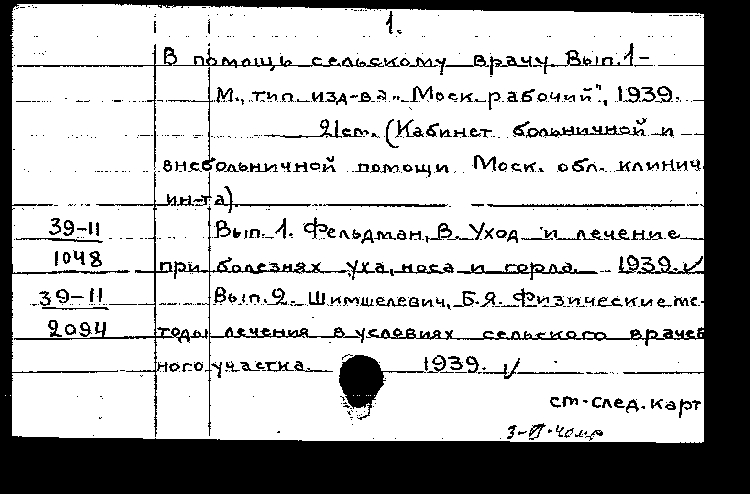 1.
В помощь сельскому врачу. Вып. 1-
М., тип. изд-ва „Моск. рабочий", 1939.
21см. (Кабинет больничной и
внебольничной помощи Моск. обл. клинич.
ин-та)
39-11 Вып. 1. Фельдман, В. Уход и лечение
1048 при болезнях уха, носа и горла. 1939. √
39-11 Вып. 2. Шимшелевич, Б.Я. Физические ме-
2094 тоды лечения в условиях сельского врачеб
ного участка. 1939. √
см. след. карт
3-VI-40